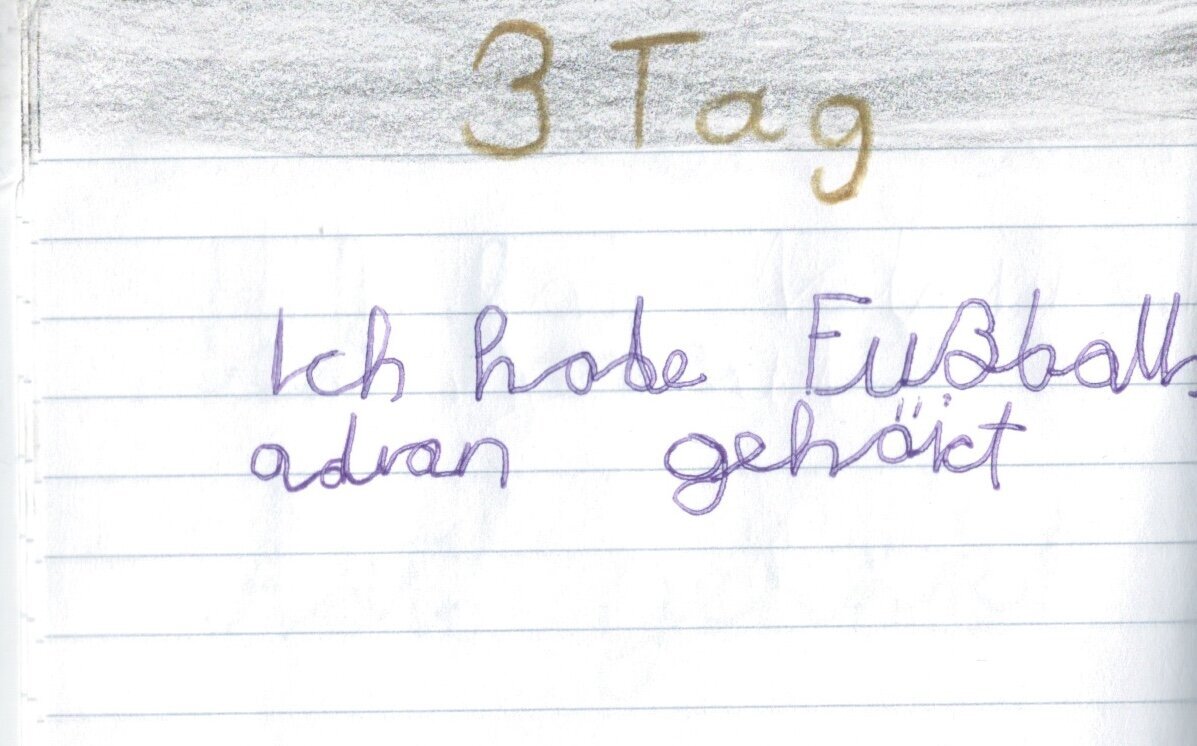 3 Tag
Ich habe Fußball
adran gehöict